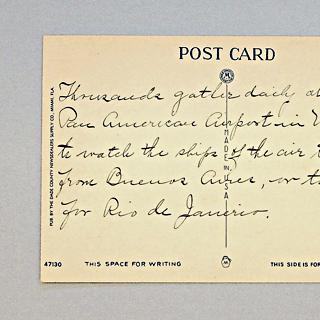 POST CARD
Thousands gather daily at
Pan American Airport in
to watch the ships of the air
from Buenos Aires, or t
for Rio de Janerio.
PUB. BY THE DADE COUNTY NEWSDEALERS SUPPLY CO., MIAMI, FLA.
MADE IN U.S.A.
47130
THIS SPACE FOR WRITING
THIS SIDE IS FOR